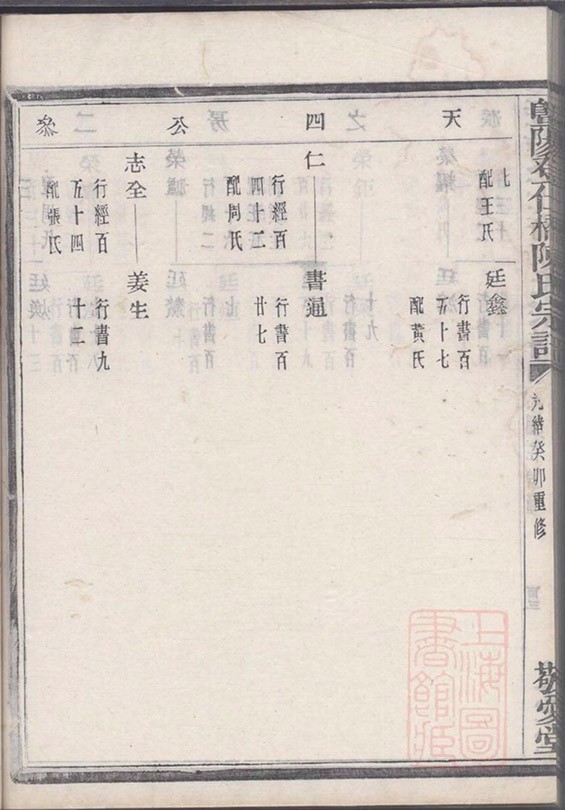 暨陽
仁橋陳氏宗譜
光緒癸卯重修
敬愛堂
天
四
公
叅
七
配王氏
廷鑫
行書百
五十七
配黃氏
仁
行經百
四十二
配周氏
書通
行書百
廿七
志全
行經百
五十四
配張氏
姜生
行書九
上海圖
書館藏